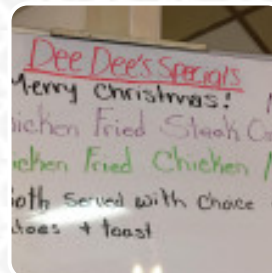 Dee Dee's Specials
Merry Christmas!
hicken Fried Steak
icken Fried Chicken
oth Served with Choice
toes + toast